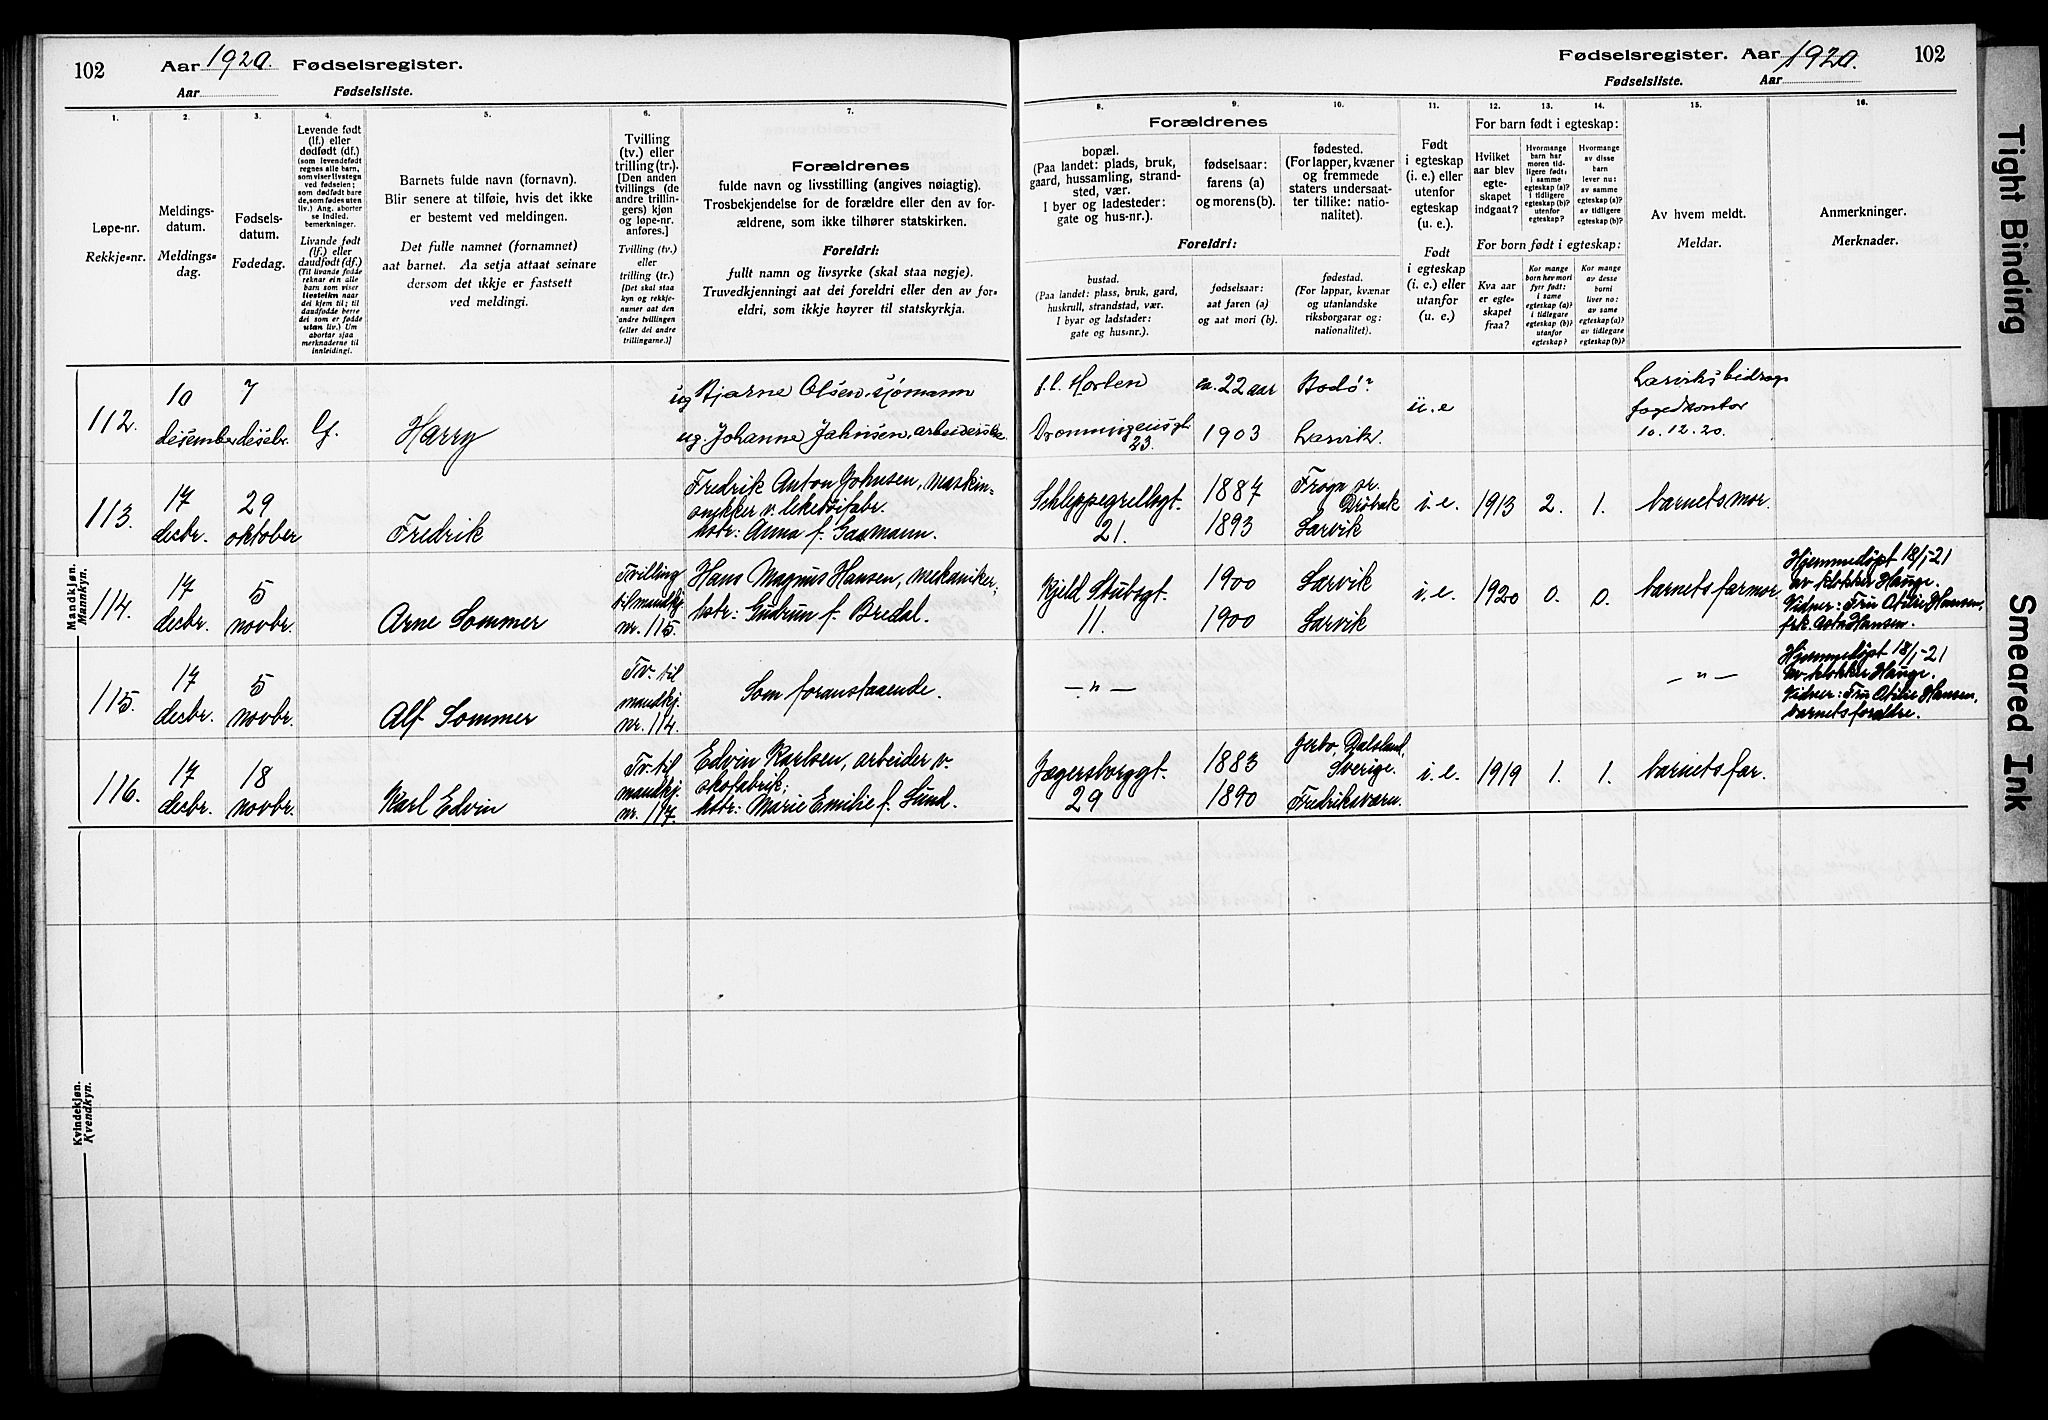 102
Aar 1920. Fødselsregister.
Aar Fødselsliste.
Fødselsregister. Aar 1920.
102
Fødselsliste. Aar
1. 2. 3. 4. 5. 6. 7.
Løpe-nr.
Rekkje-nr.
Meldings-
datum.
Meldings-
dag.
Fødsels-
datum.
Fødedag.
Levende født
(lf.) eller
dødfødt (df.)
(som levendefødt
regnes alle barn,
som viser livstegn
ved fødselen;
som dødfødt bare
de, som fødes uten
liv.) Ang. aborter
se indled.
bemerkninger.
Livande født
(lf.) eller
daudfødt (df.)
(Til livande fødde
reknar ein alle
barn som viser
livsteikn naar
dei kjem til; til
daudfødde berre
dei som er fødde
utan liv.) Um
abortar sjaa
merknaderne til
innleiding!
Barnets fulde navn (fornavn).
Blir senere at tilføie, hvis det ikke
er bestemt ved meldingen.
Det fulle namnet (fornamnet)
aat barnet. Aa setja attaat seinare
dersom det ikkje er fastsett
ved meldingi.
Tvilling
(tv.) eller
trilling (tr.).
[Den anden
tvillings (de
andre trillin-
gers) kjøn
og løpe-nr.
anføres.]
Tvilling (tv.)
eller
trilling (tr.)
[Det skal staa
kyn og rekkje-
numer aat den
andre tvillingen
(eller dei andre
trillingarne.)]
Forældrenes
fulde navn og livsstilling (angives nøiagtig).
Trosbekjendelse for de forældre eller den av for-
ældrene, som ikke tilhører statskirken.
Foreldri:
fullt namn og livsyrke (skal staa nøgje).
Truvedkjenningi aat dei foreldri eller den av for-
eldri, som ikkje høyrer til statskyrkja.
8. 9. 10. 11. 12. 13. 14. 15. 16.
Forældrenes
bopæl.
(Paa landet: plads, bruk,
gaard, hussamling, strand-
sted, vær.
I byer og ladesteder:
gate og hus-nr.).
Foreldri:
bustad.
(Paa landet: plass, bruk, gard,
huskrull, strandstad, vær.
I byar og ladstader:
gate og hus-nr.).
fødselsaar:
farens (a)
og morens (b).
fødselsaar:
aat faren (a)
og aat mori (b).
fødested.
(For lapper, kvæner
og fremmede
staters undersaat-
ter tillike: natio-
nalitet).
fødestad.
(For lappar, kvænar
og utanlandske
riksborgarar og:
nationalitet).
Født
i egteskap
(i. e.) eller
utenfor
egteskap
(u. e.).
Født
i egteskap
(i. e.) eller
utanfor
(u. e.)
For barn født i egteskap:
Hvilket
aar blev
egte-
skapet
indgaat?
Hvormange
barn har
moren tid-
ligere født:
i samme
egteskap (a)?
i tidligere
egteskap (b)?
utenfor
egteskap?
Hvormange
av disse
barn
lever nu:
av samme
egteskap (a)?
av tidligere
egteskap (b)?
For born født i egteskap:
Kva aar
er egte-
skapet
fraa?
Kor mange
born hev mori
fyrr født:
i same
egteskap (a)?
i tidlegare
egteskap (b)?
utanfor
egteskap?
Kor mange
av desse
borni
liver no:
av same
egteskap (a)?
av tidlegare
egteskap (b)?
Av hvem meldt.
Meldar.
Anmerkninger.
Merknader.
Mandkjøn.
Mannkyn.
Kvindekjøn.
Kvendkyn.
112. 10 desember 7 desebr. lf. Harry
ug Bjarne Olsen, sjømann
ug. Johanne Jahnsen, arbeiderske
f.t. Horten
Dronningensgt. 23.
ca. 22 aar
1903
Bodø?
Larvik.
u. e
Larviks bidrags
fogedkontor
10.12.20.
113. 17 decbr. 29 oktober Fredrik
Fredrik Anton Johnsen, maskin-
snekker v. leketøifabr.
hstr: Anna f. Gasmann.
Schleppegrellsgt.
21.
1887
1893
Frogn pr.
Drøbak
Larvik
i. e. 1913 2. 1. barnets mor.
114. 17 decbr. 5 novbr. Arne Sommer
Tvilling
til mandkj.
nr. 115.
Hans Magnus Hansen, mekaniker;
hstr: Gudrun f. Bredal.
Kjeld Stubsgt.
11.
1900
1900
Larvik
Larvik
i. e. 1920 0. 0. barnets farmor.
Hjemmedøpt 18/1-21
av klokker Hauge.
Vidner: Fru Otilie Hansen,
frk. Asta Hansen.
115. 17 decbr. 5 novbr. Alf Sommer
Tv. til
mandkj.
nr. 114.
Som foranstaaende.
— " —
— " —
Hjemmedøpt 18/1-21
av klokker Hauge.
Vidner: Fru Otilie Hansen,
barnets forældre.
116. 17 decbr. 18 novbr. Karl Edvin
Tv. til
mandkj.
nr. 117.
Edvin Karlsen, arbeider v.
skofabrik;
hstr: Marie Emilie f. Lund.
Jægersborggt.
29
1883
1890
Jerbo, Dalsland,
Sverige.
Fredriksværn.
i. e. 1919 1. 1. barnets far.
Tight Binding
Smeared Ink